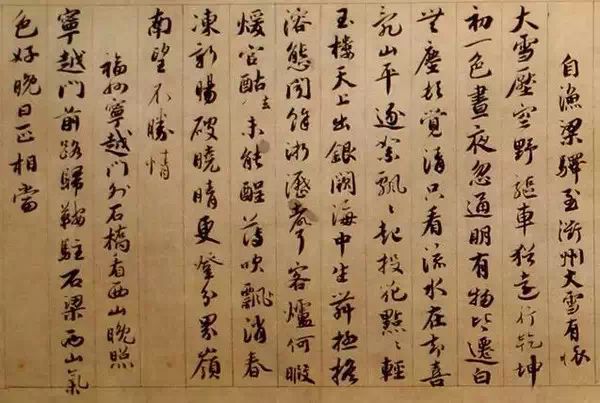 自漁梁驛至衢州大雪有懷
大雪壓空野驅車猶遠行乾坤
初一色晝夜忽通明有物皆遷白
無塵頓覺清只看流水在却喜
亂山平逐絮飄〻起投花點〻輕
玉樓天上出銀闕海中生舞極搖
溶態聞餘淅瀝聲客爐何暇
煖官酤去未能醒薄吹飄消春
凍新暘破曉晴更登分界嶺
南望不勝情
福州寧越門外石橋看西山晚照
寧越門前路歸鞍駐石梁西山氣
色好晚日正相當